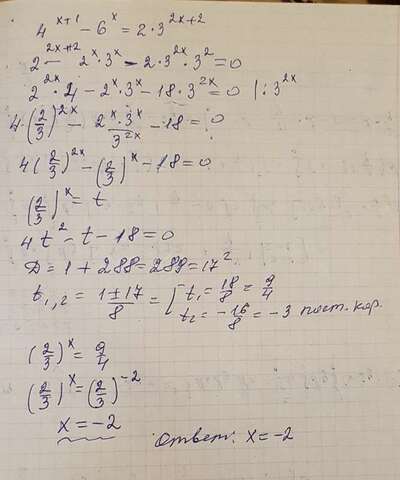 4^{x+1} - 6^x = 2 · 3^{2x+2}
2^{2x+2} - 2^x · 3^x - 2 · 3^{2x} · 3^2 = 0
2^{2x} · 4 - 2^x · 3^x - 18 · 3^{2x} = 0 | : 3^{2x}
4 · (2/3)^{2x} - (2^x · 3^x)/3^{2x} - 18 = 0
4 (2/3)^{2x} - (2/3)^x - 18 = 0
(2/3)^x = t
4t^2 - t - 18 = 0
D = 1 + 288 = 289 = 17^2
t_{1,2} = (1 ± 17)/8 = [ t_1 = 18/8 = 9/4
t_2 = -16/8 = -3 пост. кор.
(2/3)^x = 9/4
(2/3)^x = (2/3)^{-2}
x = -2
Ответ: x = -2